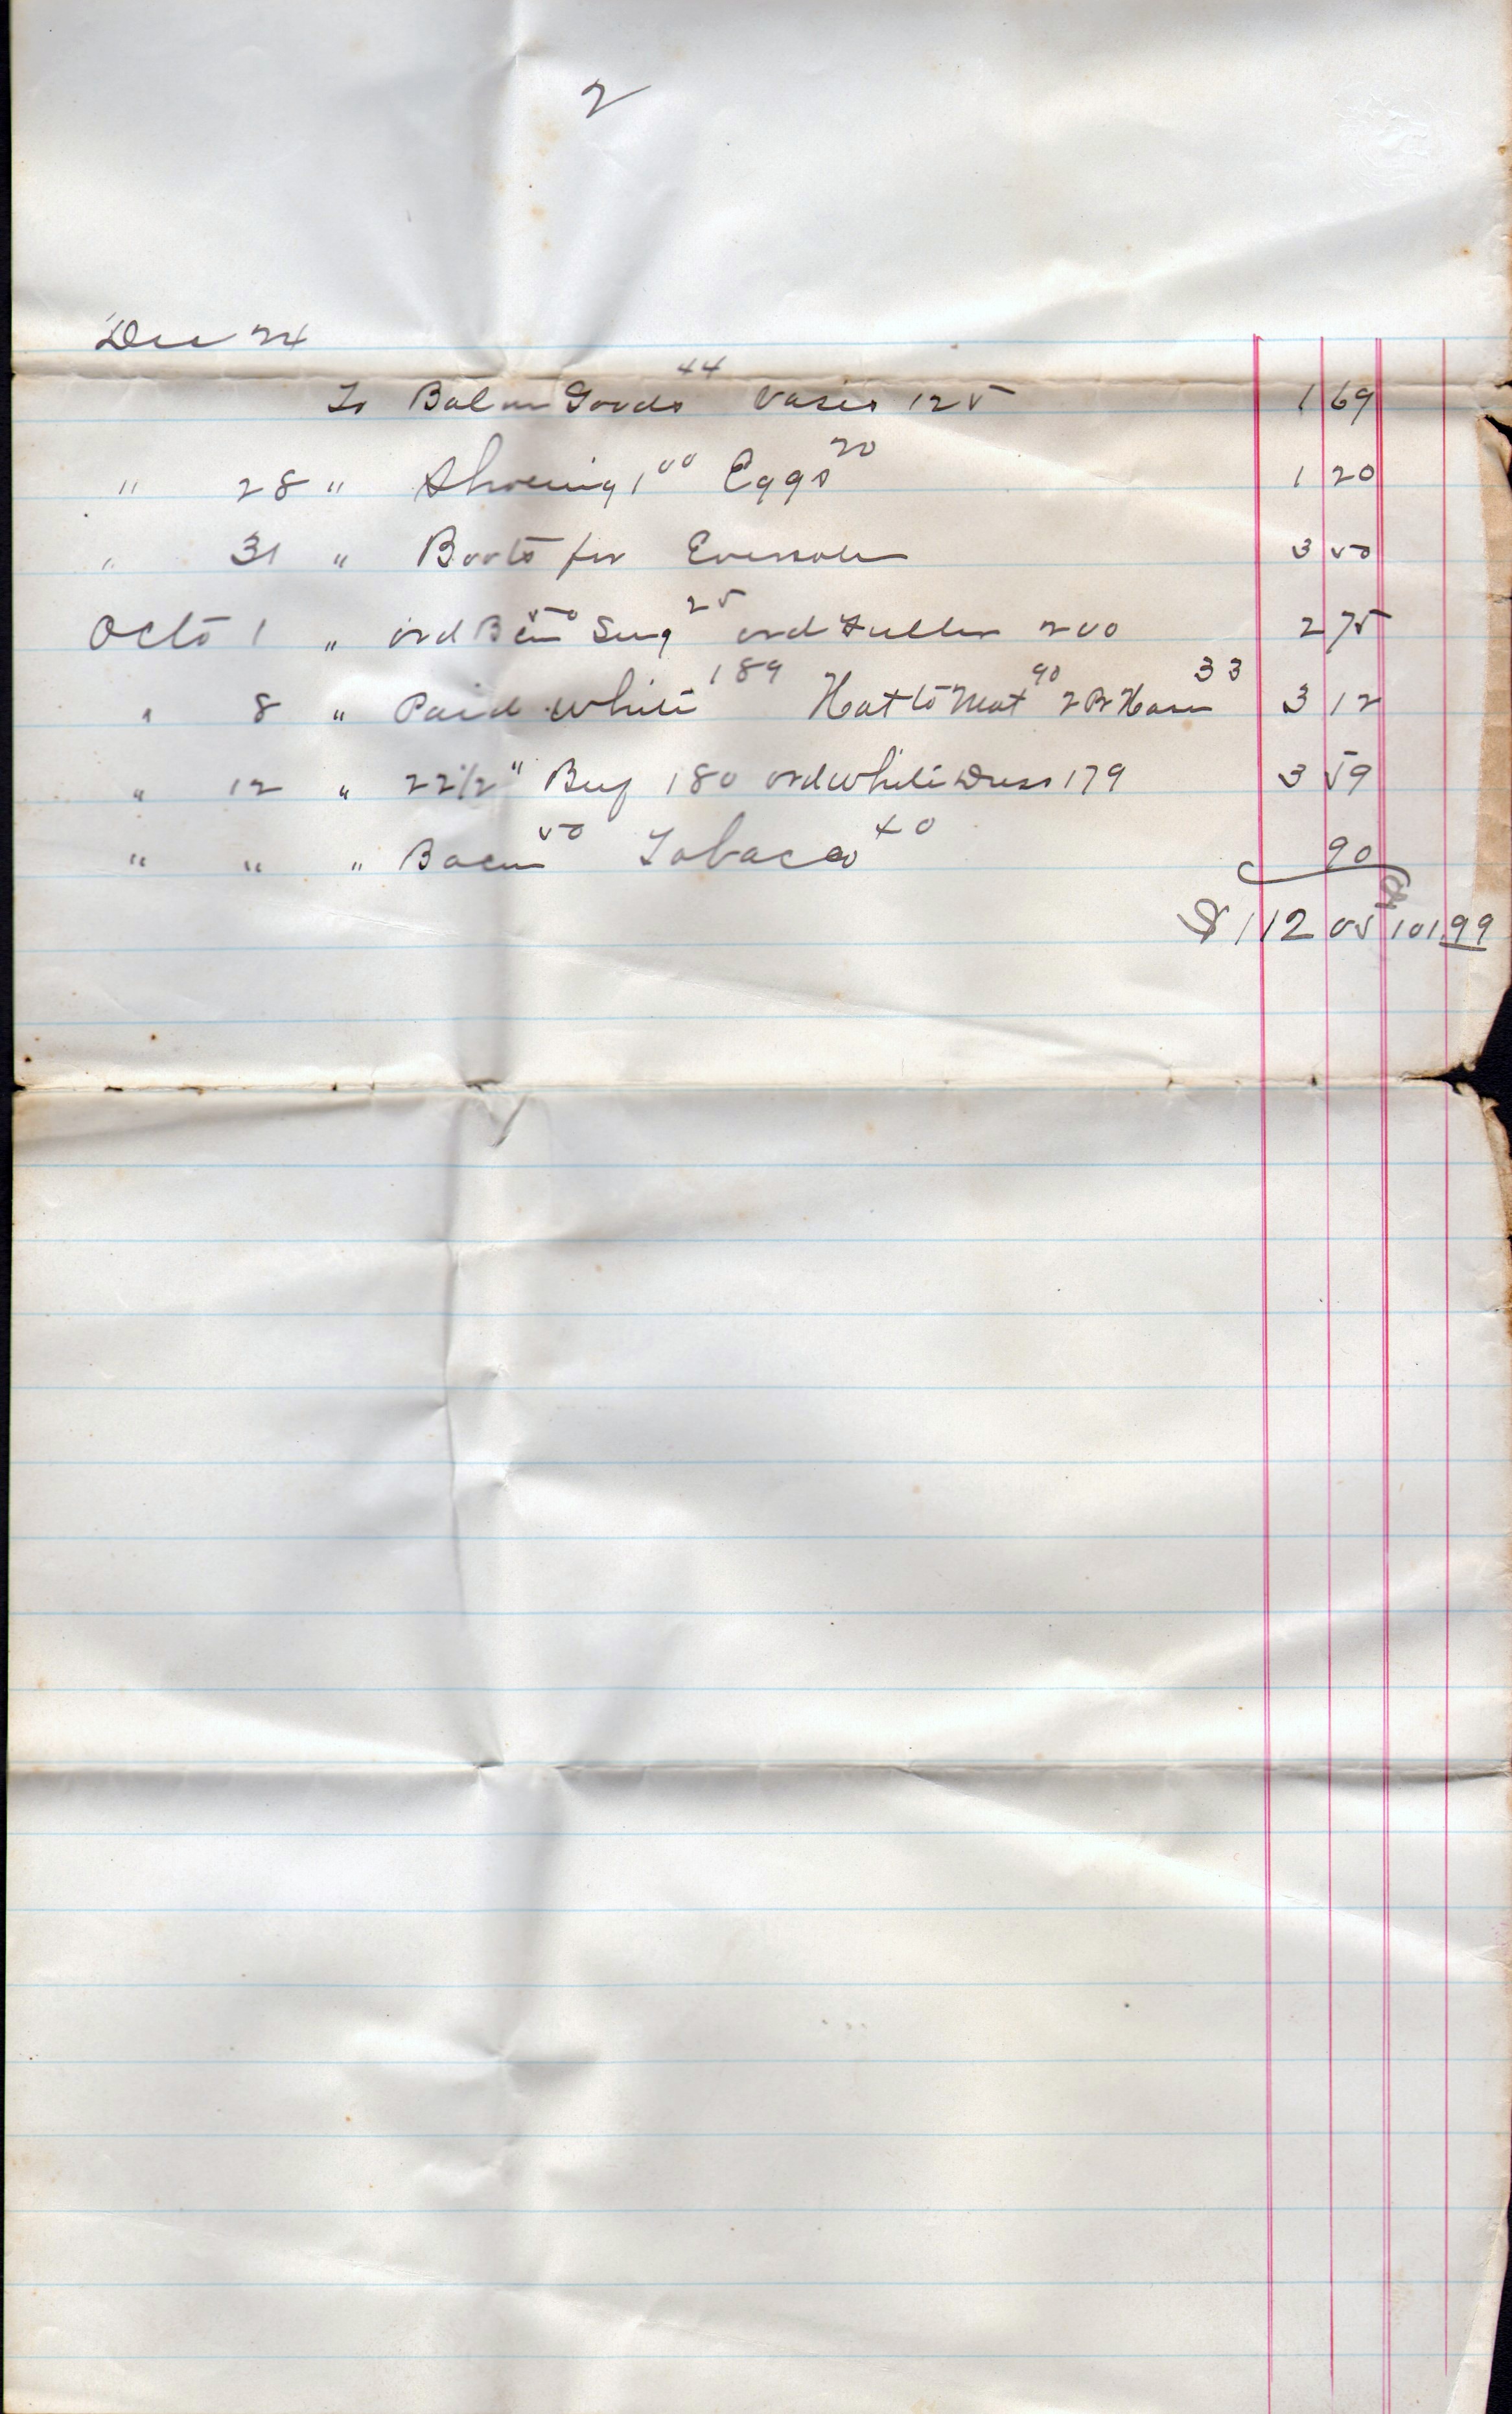 2
Dec 24
To Bal on Goods 44 Vases 125 1 69
" 28 " Shoeing 1 00 Eggs 20 1 20
" 31 " Boots for Eversole 3 50
Octo 1 " ord Ben 50 Sug 25 ord Fuller 200 2 75
" 8 " Paid White 189 Hat to Mat 90 2 Pr Hose 33 3 12
" 12 " 22 1/2 " Beef 180 ord White Dress 179 3 59
" " " Bacon 50 Tobacco 40 90
$ 112 05 101.99